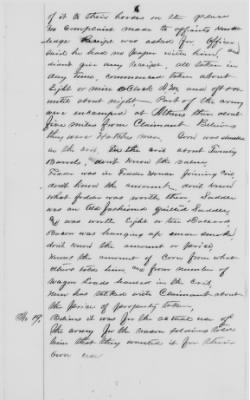 6
of it to their horses on the place
No Complaint made to affiants know-
ledge receipt was asked for Officer
said he had no paper with him, and
didnt give any receipt, all taken in
day time, commenced taken about
Eight or nine oclock A.M. and off on
untill about night - Part of the army
was encamped at Athens then about
five miles from Claimant. Believes
they were Hatches men. Corn was stored
in the Crib. In the crib about Twenty
Barrels, dont know the value,
Fodder was in Fodder House joining crib
dont know the amount, dont know
what fodder was worth then, Saddle
was an old fashioned quilted Saddle,
was worth Eight or ten Dollars
Bacon was hanging up in smoke
dont know the amount or price,
knows the amount of Corn from what
others told him, and from number of
Wagon loads hauled in the Crib,
never has talked with Claimant about
the price of property taken,
No 19. Believes it was for the actual use of
the army for the reason soldiers told
him that they wanted it for their
own use